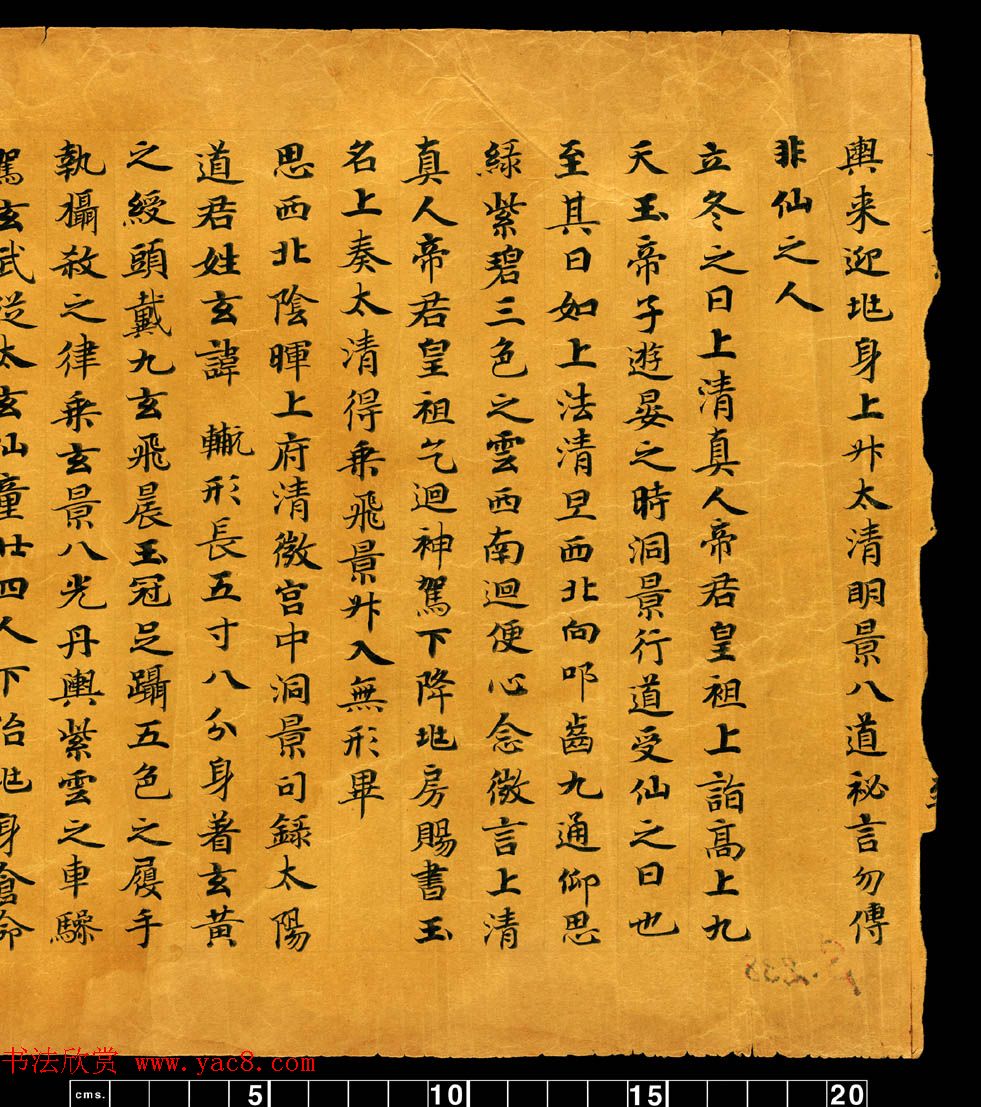 輿来迎兆身上升太清明景八道秘言勿傳
非仙之人
立冬之日上清真人帝君皇祖上詣高上九
天玉帝子遊晏之時洞景行道受仙之日也
至其日如上法清旦西北向叩齒九通仰思
綠紫碧三色之雲西南迴便心念微言上清
真人帝君皇祖乞迴神駕下降兆房賜書玉
名上奏太清得乗飛景升入無形畢
思西北陰暉上府清微宮中洞景司錄太陽
道君姓玄諱 形長五寸八分身著玄黃
之綬頭戴九玄飛晨玉冠足躡五色之履手
執攝殺之律乗玄景八光丹輿紫雲之車驂
駕玄武従太玄仙童廿四人下治兆身倉命
书法欣赏 www.yac8.com
cms. 5 10 15 20